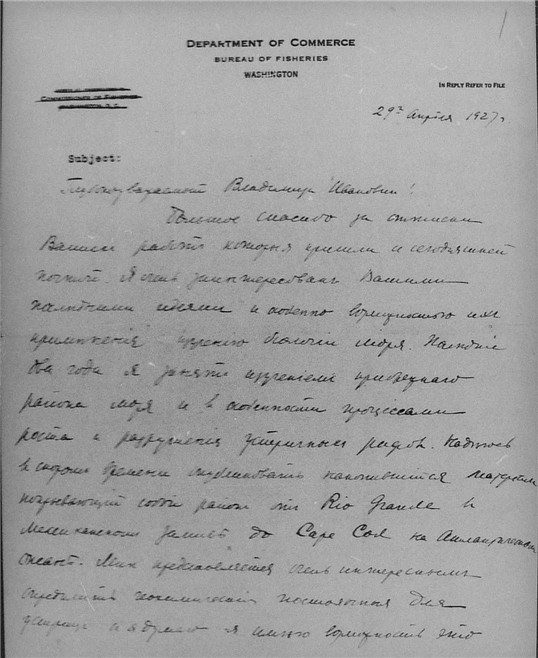 DEPARTMENT OF COMMERCE
BUREAU OF FISHERIES
WASHINGTON
COMMISSIONER OF FISHERIES
WASHINGTON, D.C.
IN REPLY REFER TO FILE
29го апреля 1927 г.
Subject:
Глубокоуважаемый Владимир Иванович!
Большое спасибо за оттиски
Ваших работ которыя пришли с сегодняшней
почтой. Я очень заинтересован Вашими
идеями и особенно возможностью их
применения к изучению биологии моря. Последние
два года я занят изучением прибрежного
района моря и в особенности процессами
роста и разрушения устричных рифов. Надеюсь
в скором времени опубликовать накопившийся материал
покрывающий собой район от Rio Grande в
Мексиканском заливе до Cape Cod на Атлантическом
океане. Мне представляется очень интересным
определить геохимические постоянныя для
устриц и я думаю я имею возможность это